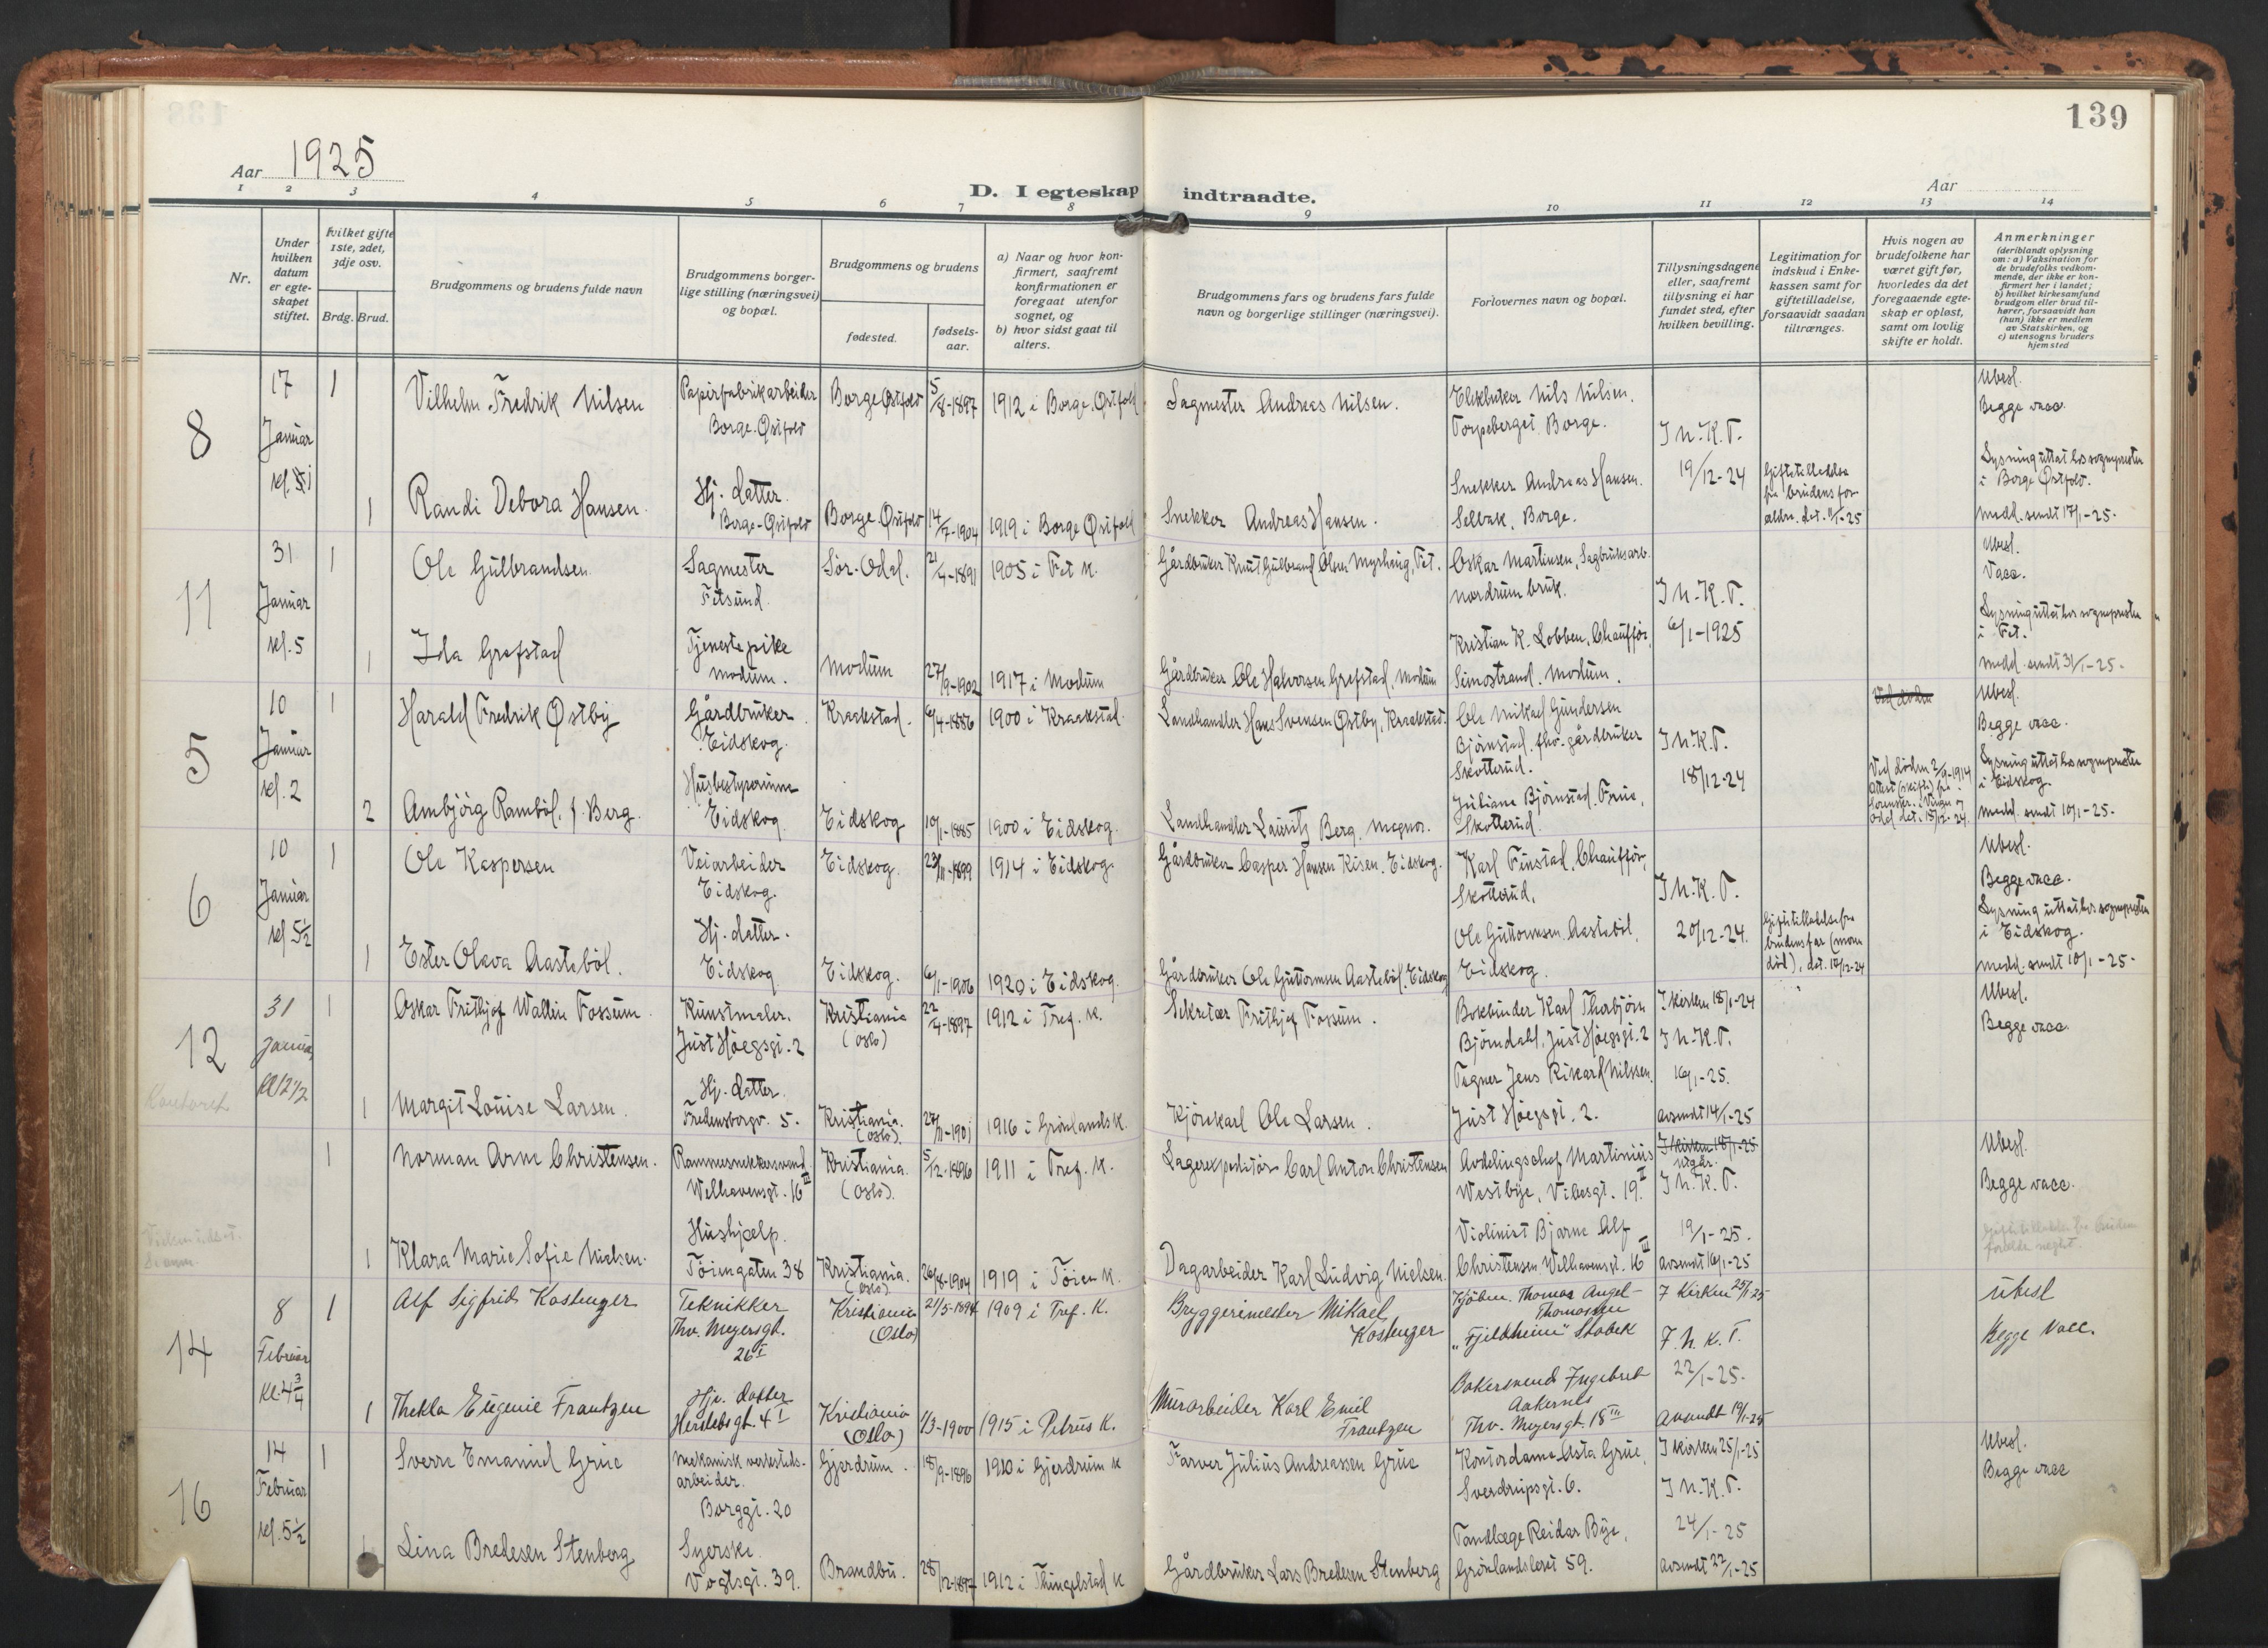 139
Aar 1925
D. I egteskap indtraadte.
Aar
1 2 3 4 5 6 7 8 9 10 11 12 13 14
Nr.
Under hvilken datum er egte-skapet stiftet.
hvilket gifte 1ste, 2det, 3dje osv.
Brdg. Brud.
Brudgommens og brudens fulde navn
Brudgommens borger-lige stilling (næringsvei) og bopæl.
Brudgommens og brudens
fødested.
fødsels-aar.
a) Naar og hvor kon-firmert, saafremt konfirmationen er foregaat utenfor sognet, og
b) hvor sidst gaat til alters.
Brudgommens fars og brudens fars fulde navn og borgerlige stillinger (næringsvei).
Forlovernes navn og bopæl.
Tillysningsdagene eller, saafremt tillysning ei har fundet sted, efter hvilken bevilling.
Legitimation for indskud i Enke-kassen samt for giftetilladelse, forsaavidt saadan tiltrænges.
Hvis nogen av brudefolkene har været gift før, hvorledes da det foregaaende egte-skap er opløst, samt om lovlig skifte er holdt.
Anmerkninger
(deriblandt oplysning om: a) Vaksination for de brudefolks vedkom-mende, der ikke er kon-firmert her i landet;
b) hvilket kirkesamfund brudgom eller brud til-hører, forsaavidt han (hun) ikke er medlem av Statskirken, og
c) utensogns bruders hjemsted
8
17 Januar
1
Vilhelm Fredrik Nilsen
Papirfabrikarbeider
Borge. Østfold
Borge Østfold
5/8-1897
1912 i Borge, Østfold
Sagmester Andreas Nilsen.
Nils Nilsen.
Torpeberget. Borge.
I N.K.T.
19/12-24
Ubesl.
Begge vacc.
Lysning uttat hos sognepresten
i Borge Østfold.
medd. sendt 17/1-25-
1
Randi Debora Hansen.
Hj. datter.
Borge-Østfold
Borge Østfold
14/7-1904
1919 i Borge Østfold
Snekker Andreas Hansen.
Snekker Andreas Hansen.
Selbak, Borge.
Giftetilladelse
fra brudens for-
ældre. dat. 11/1-25
11
31 Januar
kl. 5
1
Ole Gulbrandsen.
Sagmester
Fetsund.
Sør-Odal.
21/4-1891
1905 i Fet K.
Gårdbruker Knut Gulbrand Olsen Myrhaug, Fet.
Oskar Martinsen, Sagbruksarb.
Nordrum bruk.
I N.K.T.
6/1-1925
Ubesl.
Vacc.
Lysning uttat hos sognepresten
i Fet.
medd. sendt 31/1-25-
1
Ida Grefstad
Tjenestepike
Modum.
Modum
27/9-1902
1917 i Modum
Gårdbruker Ole Halvorsen Grefstad, Modum
Kristian K. Lobben, Chauffør,
Simostrand. Modum.
5
10 Januar
kl. 2
1
Harald Fredrik Østby
Gårdbruker
Eidskog.
Kraakstad.
6/4-1886
1900 i Kraakstad.
Landhandler Hans Svensen Østby, Kraakstad.
Ole Mikael Gundersen
Bjørnstad. fhv. gårdbruker
Skotterud.
I N.K.T.
18/12-24
Ubesl.
Begge vacc.
Lysning uttat hos sogneprester
i Eidskog
medd. sendt 10/1-25-
2
Ambjørg Ramböl, f. Berg.
Husbestyrerinne
Eidskog.
Eidskog
10/1-1885
1900 i Eidskog.
Landhandler Lauritz Berg. Magnor.
Juliane Bjørnstad. Frue,
Skotterud.
Ved døden 2/9-1914
Attest (skifte) fra
Sorenskr. i Vinger og
Odal dat. 15/12-24.
6
10 Januar
kl 5½
1
Ole Kaspersen
Veiarbeider
Eidskog.
Eidskog.
23/11-1899
1914 i Eidskog.
Gårdbruker Casper Hansen Kisen. Eidskog.
Karl Finstad, Chauffør,
Skotterud.
I N.K.T.
20/12-24.
Ubesl.
Begge vacc.
Lysning uttat hos sogneprester
i Eidskog.
medd. sendt 10/1-25-
1
Ester Oleva Aasteböl.
Hj. datter.
Eidskog
Eidskog.
6/1-1906
1920 i Eidskog.
Gårdbruker Ole Guttormsen Aasteböl, Eidskog
Ole Guttormsen Aasteböl,
Eidskog.
Giftetilladelse fra
brudens far (moren
död), dat. 18/12-24
12
31 Januar
Kl 12½
1
Oskar Frithjof Wallin Fossum.
Kunstmaler.
Just Høegsgt. 2
Kristiania
(Oslo)
22/4-1897
1912 i Tref. K.
Sekretær Frithjof Fossum.
Bokbinder Karl Thorbjørn
Bjørndahl, Just Høegsgt. 2
I kirken 18/1-24
I N.K.T.
16/1-25.
avsendt 14/1-25
Ubesl.
Begge vacc.
1
Margit Louise Larsen.
Hj. datter.
Fredensborgv. 5.
Kristiania.
(Oslo).
27/11-1901
1916 i Grønlands K.
Kjørekarl Ole Larsen.
Tegner Jens Rikard Nilssen.
Just Høegsgt. 2.
1
Norman Arne Christensen.
Rammesnekkersvend.
Welhavensgt. 16 III
Kristiania.
(Oslo).
5/12-1896
1911 i Tref. K.
Lagerexpeditør Carl Anton Christensen
Avdelingschef Martinius
Westbye, Vibesgt. 19 II
I kirken 18/1-25
utgår.
I N.K.T.
19/1-25.
avsendt 16/1-25
Ubesl.
Begge vacc.
1
Klara Marie Sofie Nielsen.
Hushjælp.
Töiengaten 38
Kristiania.
(Oslo).
26/8-1904
1919 i Töien K.
Dagarbeider Karl Ludvig Nielsen.
Violinist Bjarne Alf
Christensen Welhavensgt. 16 III
14
8 Februar
Kl. 4¾
1
Alf Sigfrid Kostenzer
Teknikker
Thv. Meyersgt.
26 I
Kristiania
(Oslo)
21/5-1894
1909 i Tref. K.
Bryggerimester Mikael
Kostenzer
Kjöbm. Thomas Angel-
Thomassen
"Fjeldheim" Stabek
I Kirken 25/1-25
I. N. K. T.
22/1-25.
Avsendt 19/1-25
Ubesl
Begge Vacc.
1
Thekla Eugenie Frantzen
Hje. datter
Herslebsgt. 4 I
Kristiania
(Oslo)
1/3-1900
1915 i Petrus K.
Murarbeider Karl Emil
Frantzen
Bakersvend Ingebret
Aakernes
Thv. Meyersgt. 18 III
16
14 Februar
kl. 5½
1
Sverre Emanuel Grue
Mekanisk verksteds-
arbeider.
Borggt. 20
Gjerdrum.
18/9-1896
1910 i Gjerdrum K
Farver Julius Andreassen Grue
Kontordame Asta Grue,
Sverdrupsgt. 6.
I kirken 25/1-25
I N.K.T.
24/1-25
Avsendt 22/1-25
Ubesl.
Begge vacc
Lina Bredesen Stenberg
Syerske.
Vogtsgt. 39.
Brandbu.
28/12-1897
1912 i Thingelstad K
Gårdbruker Lars Bredesen Stenberg
Tandlæge Reidar Bye,
Grönlandsleret 59.